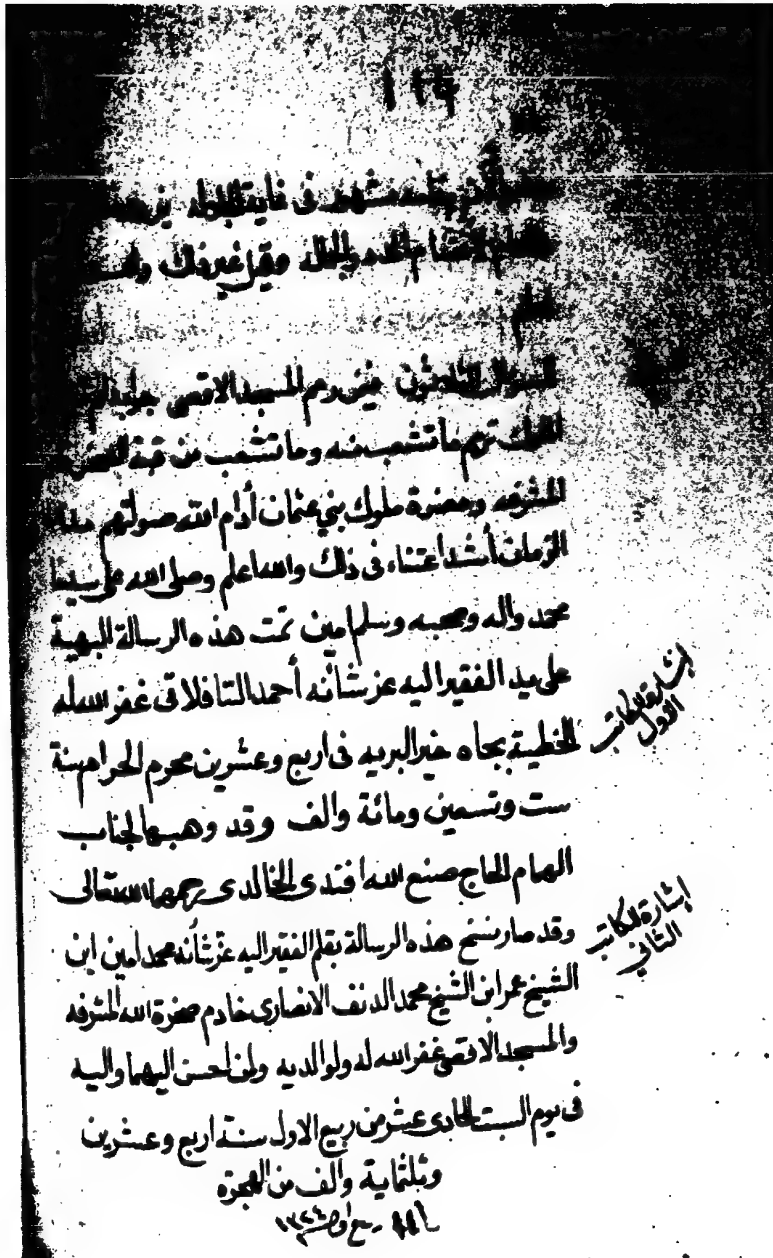 ١١٤
مشهور فى غاية
وقيل غير ذلك
السؤال الثلاثون فيمن رمم المسجد الاقصى
ترمم ما تشعب منه وما تشعب من قبة
المشرفه وحضرة ملوك بني عثمان أدام الله صولتهم
الزمان أشد اعتناء فى ذلك والله اعلم وصلى الله على سيدنا
محمد واله وصحبه وسلم امين تمت هذه الرسالة البهية
على يد الفقير اليه عز شأنه أحمد التافلاتى غفر الله له
الخطية بجاه خير البريه فى اربع وعشرين محرم الحرام سنة
ست وتسعين ومائة والف وقد وهبها لجناب
الهمام الحاج صنع الله افندى الخالدى رحمهما الله تعالى
وقد صار نسخ هذه الرسالة بقلم الفقير اليه عز شأنه محمد امين ابن
الشيخ عمر ابن الشيخ محمد الدنف الانصارى خادم صخرة الله المشرفه
والمسجد الاقصى غفر الله له ولوالديه ولمن احسن اليهما واليه
فى يوم السبت الحادى عشر من ربيع الاول سنة اربع وعشرين
وثلثماية والف من الهجرة
١٣٢٤
إشارة الكاتب
الاول
إشارة الكاتب
الثاني